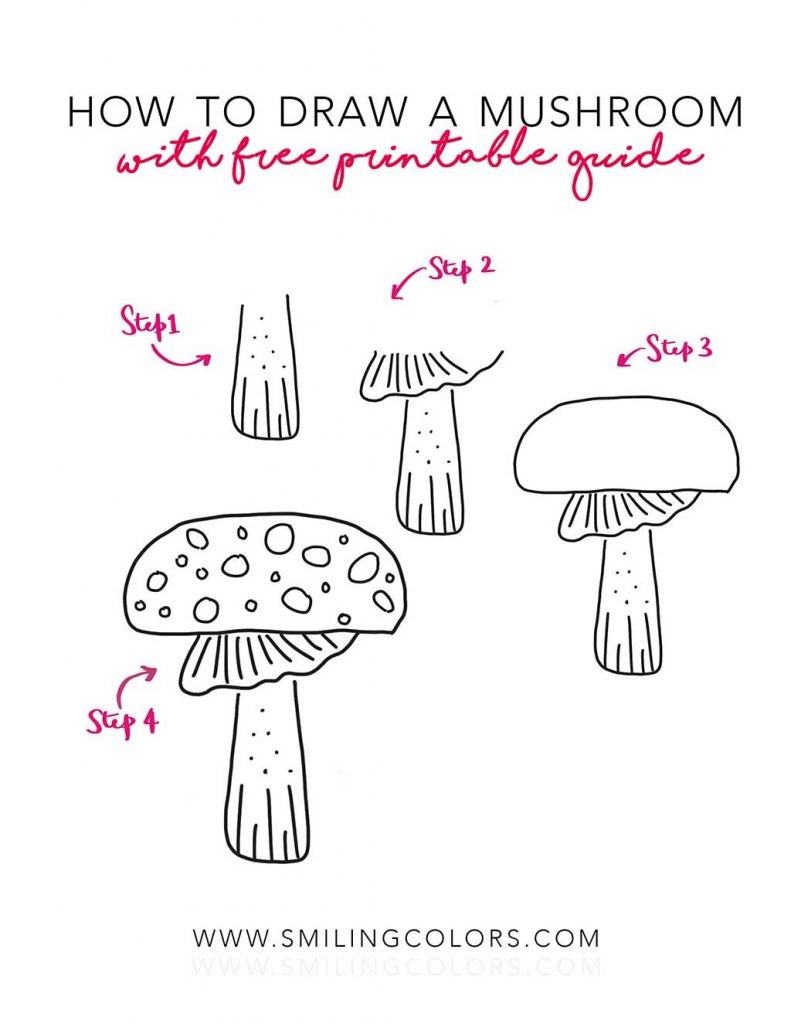 HOW TO DRAW A MUSHROOM
with free printable guide
Step 1
Step 2
Step 3
Step 4
WWW.SMILINGCOLORS.COM
WWW.SMILINGCOLORS.COM